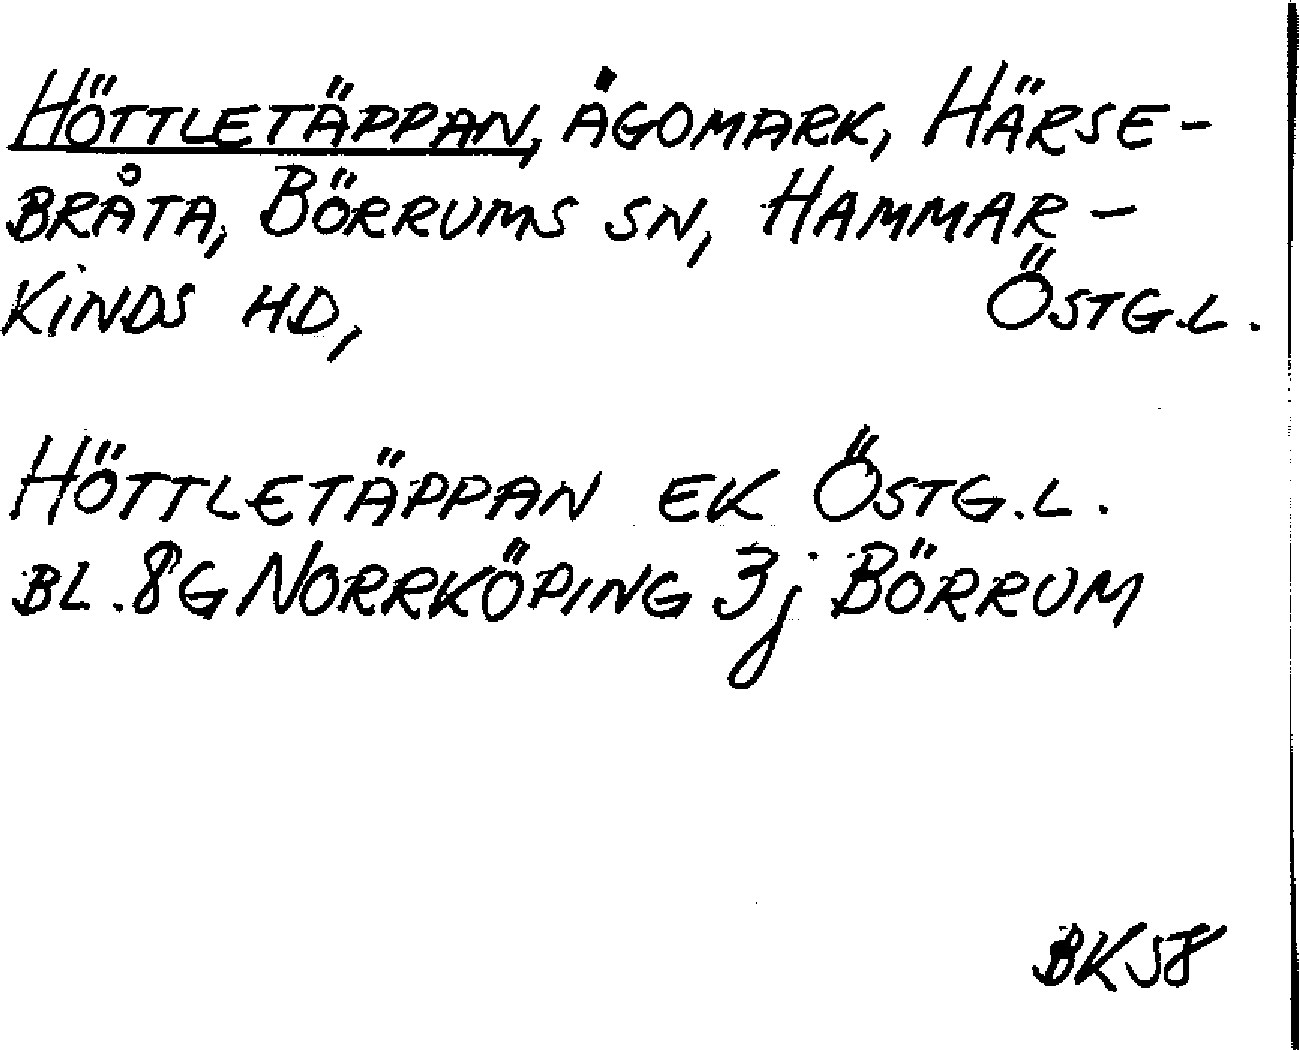 HÖTTLETÄPPAN, ÄGOMARK, HÄRSE-
BRÅTA, BÖRRUMS SN, HAMMAR-
KINDS HD, ÖSTG.L.
HÖTTLETÄPPAN EK ÖSTG.L.
BL. 8G NORRKÖPING 3j BÖRRUM